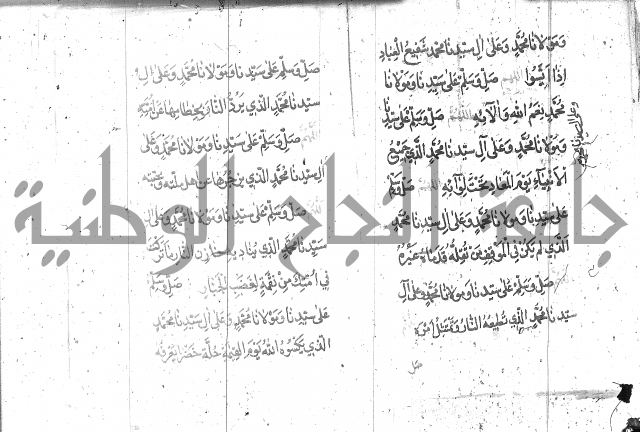 ومولانا محمد وعلى آل سيدنا محمد شفيع العباد
إذا أيسوا اللهم صل وسلم على سيدنا ومولانا
محمد نعم الله والآوه اللهم صل وسلم على سيدنا
ومولانا محمد وعلى آل سيدنا محمد الذي جميع
الأنبياء يوم المعاد تحت لوائه اللهم صل وسلم
على سيدنا ومولانا محمد وعلى آل سيدنا محمد
الذي لم يكن في الموقف من تقبله قدماه غيره
صل وسلم على سيدنا ومولانا محمد وعلى آل
سيدنا محمد الذي تطيعه النار وتمتثل أمره
صل
صل وسلم على سيدنا ومولانا محمد وعلى آل
سيدنا محمد الذي يرد النار بخطامها عن
صل وسلم على سيدنا ومولانا محمد وعلى
آل سيدنا محمد الذي يزجرها عن أهل ملته ومحبته
صل وسلم على سيدنا ومولانا محمد وعلى آل
سيدنا محمد الذي يناديه خازن النار ما تركت
في أمتك من نقمة لغضب الجبار صل وسلم
على سيدنا ومولانا محمد وعلى آل سيدنا محمد
الذي يكسوه الله يوم القيمة حلة خضرا يعرفه
جامعة النجاح الوطنية